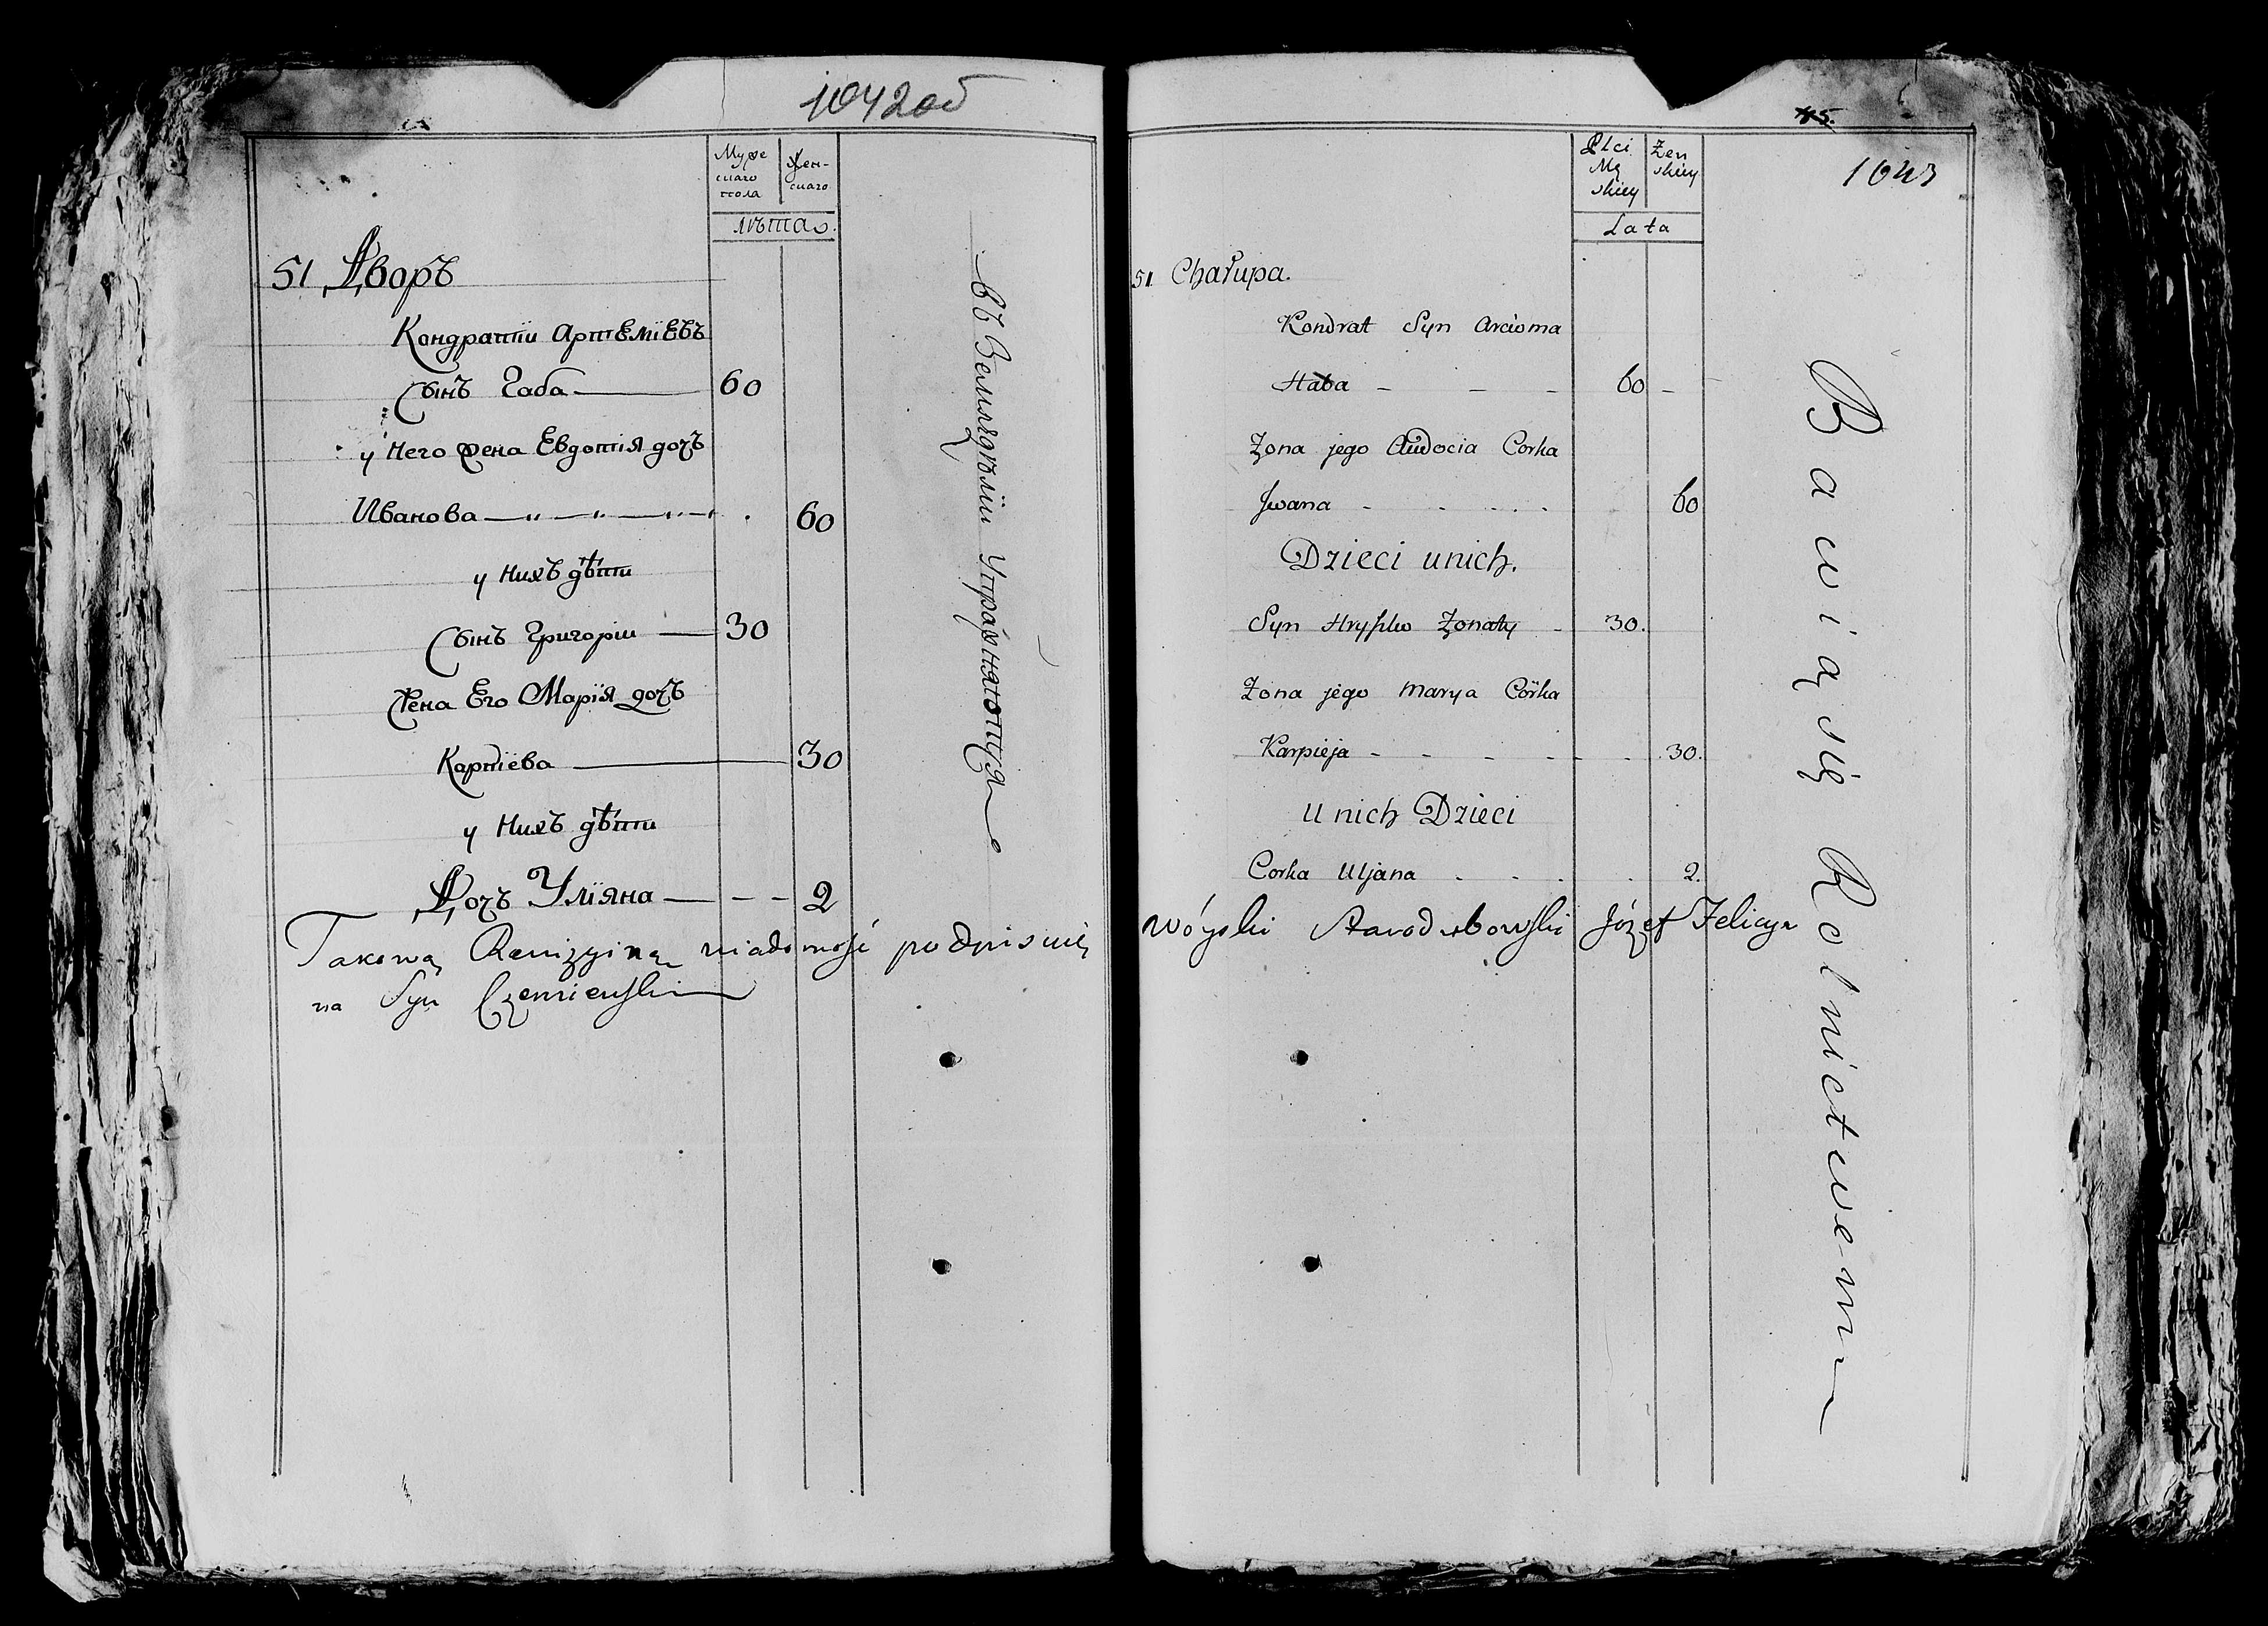 1042об
Муже
скаго
пола
Жен-
скаго
лѣта
51 Дворъ
Кондратiи Артемiевъ
Сынъ Габа 60
у Него жена Евдотiя дочь
Иванова 60
у нихъ дѣти
Сынъ Григорiи 30
Жена Его Марiя дочь
Карпiева 30
у нихъ дѣти
Дочь Улiяна 2
въ Земледѣлiи Упражняютця
Takową Rewizyiną wiadomość podpisuię
na Syn Czernieński
45.
1043
Płci
Mę
skiey
Żen
skiey
Lata
51 Chałupa.
Kondrat Syn Arcioma
Haba 60
Żona jego Audocia Corka
Jwana 60
Dzieci unich.
Syn Hryszko Żonaty 30.
Żona jego Marya Córka
Karpieja 30.
U nich Dzieci
Corka Uljana 2.
Wóyski Starodubowski Józef Felicya
Bawią się Rolnictwem